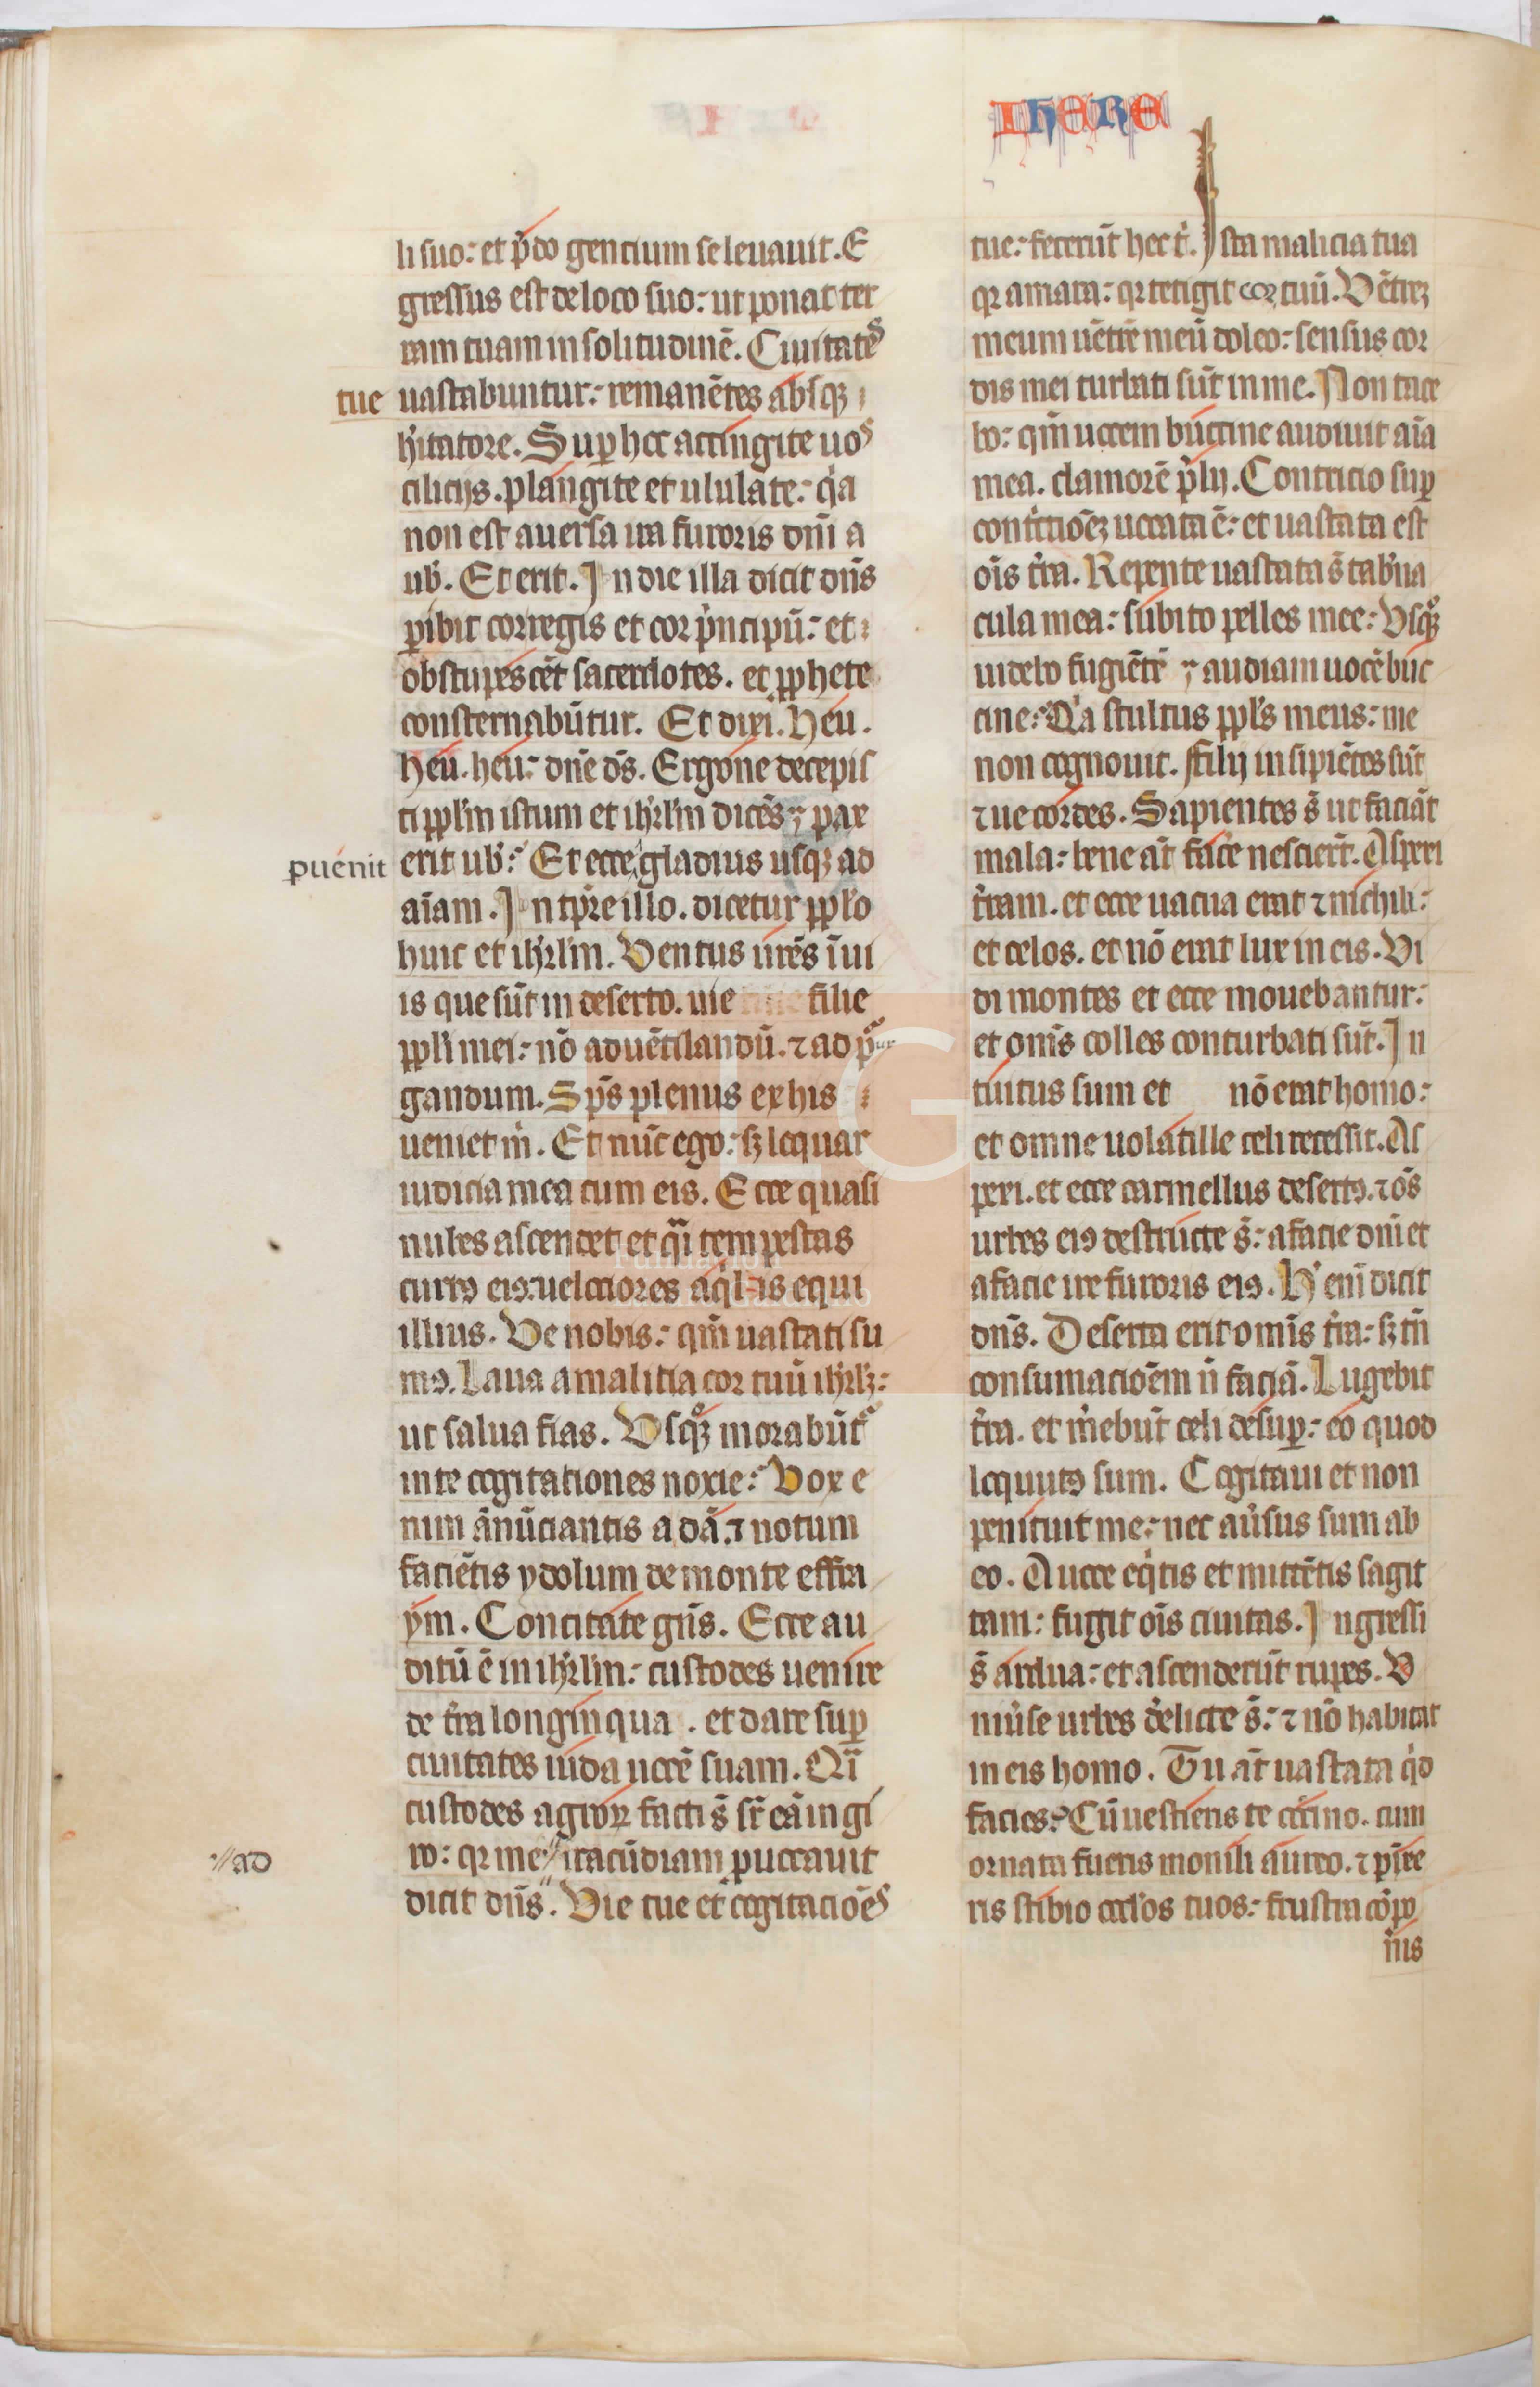 IHERE
li suo: et p̃do gencium se leuauit. E
gressus est de loco suo: ut ponat ter
ram tuam in solitudinē. Ciuitates
tue
uastabuntur: remanētes absqꝫ
hītatore. Suꝑ hec accingite uos
cilicijs. plangite et ululate: qͥa
non est auersa ira furoris dn̄i a
uob̄. Et erit. In die illa dicit dn̄s
ꝑibit cor regis et cor pͥncipū: et
obstupescēt sacerdotes. et ꝓphete
consternabūtur. Et dixi. Heu.
heu. heu: dn̄e ds̄. Ergone decepis
ti ppl̄m istum et ih̄rlm̄ dicēs: pax
puenit
erit uob̄: Et ecce gladius usqꝫ ad
aīam. In tp̄re illo. dicetur ppl̄o
huic et ih̄rlm̄. Ventus urēs ī ui
is que sūt in deserto. uie filie
ppl̄i mei: nō ad uētilandū. ⁊ ad pur
gandum. Sp̄s plenus ex his
ueniet m̄. Et nūc ego: sꝫ loquar
iudicia mea cum eis. Ecce quasi
nubes ascendet et qͣi tempestas
currꝰ eiꝰ: uelociores aql̄is equi
illius. Ve nobis: qm̄ uastati su
mꝰ. Laua a malitia cor tuū ih̄rlꝫ:
ut salua fias. Vsqꝫ morabūtͬ
in te cogitationes noxie: Vox e
nim ānūciantis a dā. ⁊ notum
faciētis ydolum de monte effra
ym. Concitate gn̄s. Ecce au
ditū ē in ih̄rlm̄: custodes uenire
de tr̄a longinqua . et dare suꝑ
ciuitates iuda uocē suam. Qͣi
custodes agroꝝ facti s̄ sr̄ eā in gi
//ad
ro: qꝛ me // iracūdiam puocauit
dicit dn̄s". Vie tue et cogitacioēs
tue: fecerūt hec t̄. Ista malicia tua
qꝛ amara: qꝛ tetigit cor tuū. Vētreꝫ
meum uētrē meū doleo: sensus cor
dis mei turbati sūt in me. Non tace
bo: qm̄ uocem buccine audiuit aīa
mea. clamorē p̄lij. Contricio suꝑ
contͥcioēꝫ uocata ē: et uastata est
oīs tr̄a. Repente uastata s̄ tab̄na
cula mea: subito pelles mee: Vsqꝫ
uidebo fugiētē ⁊ audiam uocē buc
cine: Qͥa stultus ppl̄s meus: me
non cognouit. filij insipiētes sūt
⁊ uecordes. Sapientes s̄ ut faciāt
mala: bene āt facͤe nescierūt. Aspexi
tr̄am. et ecce uacua erat ⁊ nichili:
et celos. et nō erat lux in eis. Vi
di montes et ecce mouebantur:
et om̄s colles conturbati sūt. In
tuitus sum et nō erat homo:
et omne uolatille celi recessit. As
pexi. et ecce carmellus desertꝰ. ⁊ os̄
urbes eiꝰ destructe s̄: a facie dn̄i et
a facie ire furoris eiꝰ. H̄ eni dicit
dn̄s. Deserta erit omīs tr̄a: sꝫ tn̄
consumacioēm n̄ faciā. Lugebit
tr̄a. et m̄ebūt celi desuꝑ: eo quod
loquutꝰ sum. Cogitaui et non
penituit me: nec auͥsus sum ab
eo. A uoce eqͥtis et mittētis sagit
tam: fugit oīs ciuitas. Ingressi
s̄ ardua: et ascenderūt rupes. V
niuͥse urbes dͤelicte s̄: ⁊ nō habitat
in eis homo. Tu āt uastata qͥd
facies: Cū uestieris te coccino. cum
ornata fueris monili aureo. ⁊ pīxe
ris stibio oclōs tuos: frustra cōpo
nͥis